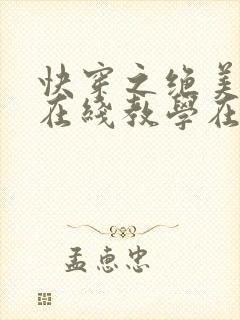 快穿之绝美
在线教学在
孟惠忠